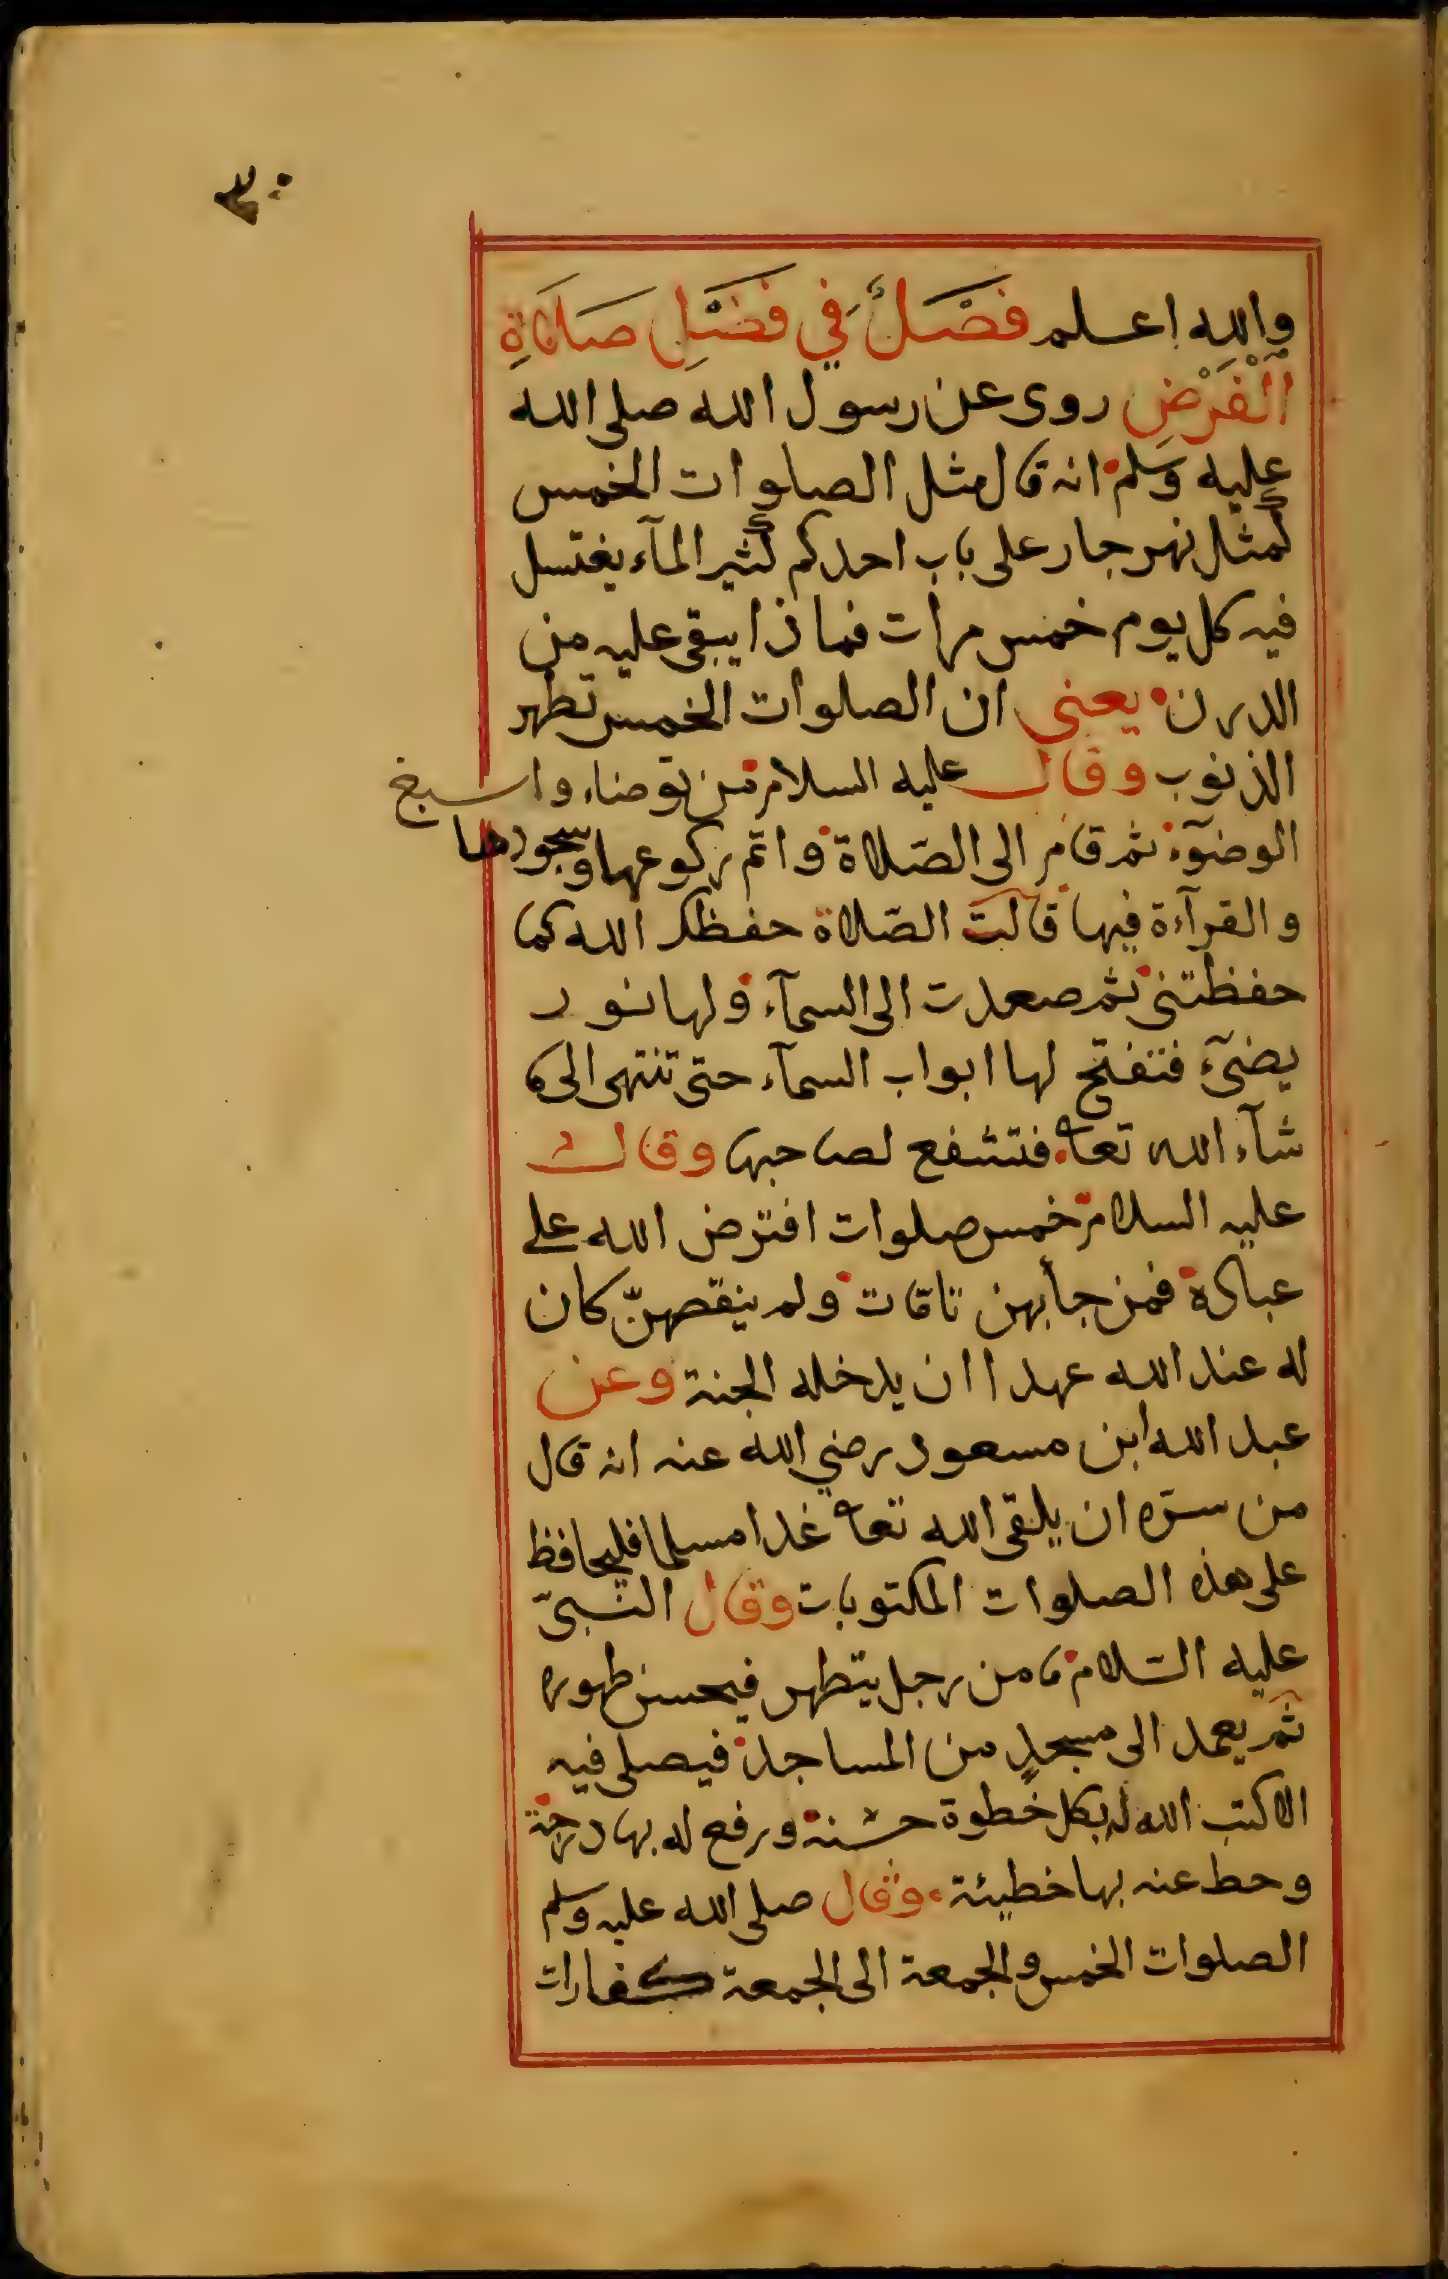 ٣٠
والله اعلم فَصْلٌ فِي فَضْلِ صَلَاةِ
الْفَرْضِ روى عن رسول الله صلى الله
عليه وسلم انه قال مثل الصلوات الخمس
كمثل نهر جار على باب احدكم كثير المآء يغتسل
فيه كل يوم خمس مرات فماذا يبقى عليه من
الدرن يعنى ان الصلوات الخمس تطهر
الذنوب وقال عليه السلام من توضاء واسبغ
الوضوٓء ثم قام الى الصّلاة واتم ركوعها وسجودها
والقرآءة فيها قالت الصّلاة حفظك الله كما
حفظتنى ثم صعدت الى السمآء ولها نور
يضىٓء فتفتح لها ابواب السمآء حتى تنتهى الى ما
شآء الله تعا فتشفع لصاحبها وقال
عليه السلام خمس صلوات افترض الله على
عباده فمن جأ بهن تامات ولم ينقصهنّ كان
له عند الله عهدا ان يدخله الجنة وعن
عبد الله ابن مسعود رضي الله عنه انه قال
من سرّه ان يلقى الله تعا غدا مسلما فليحافظ
على هذه الصلوات المكتوبات وقال النبىّ
عليه السّلام ما من رجل يتطهر فيحسن طهوره
ثم يعمد الى مسجدٍ من المساجد فيصلى فيه
الا كتب الله له بكل خطوة حسنة ورفع له بها درجة
وحط عنه بها خطيئة وقال صلى الله عليه وسلم
الصلوات الخمس والجمعة الى الجمعة كفارات